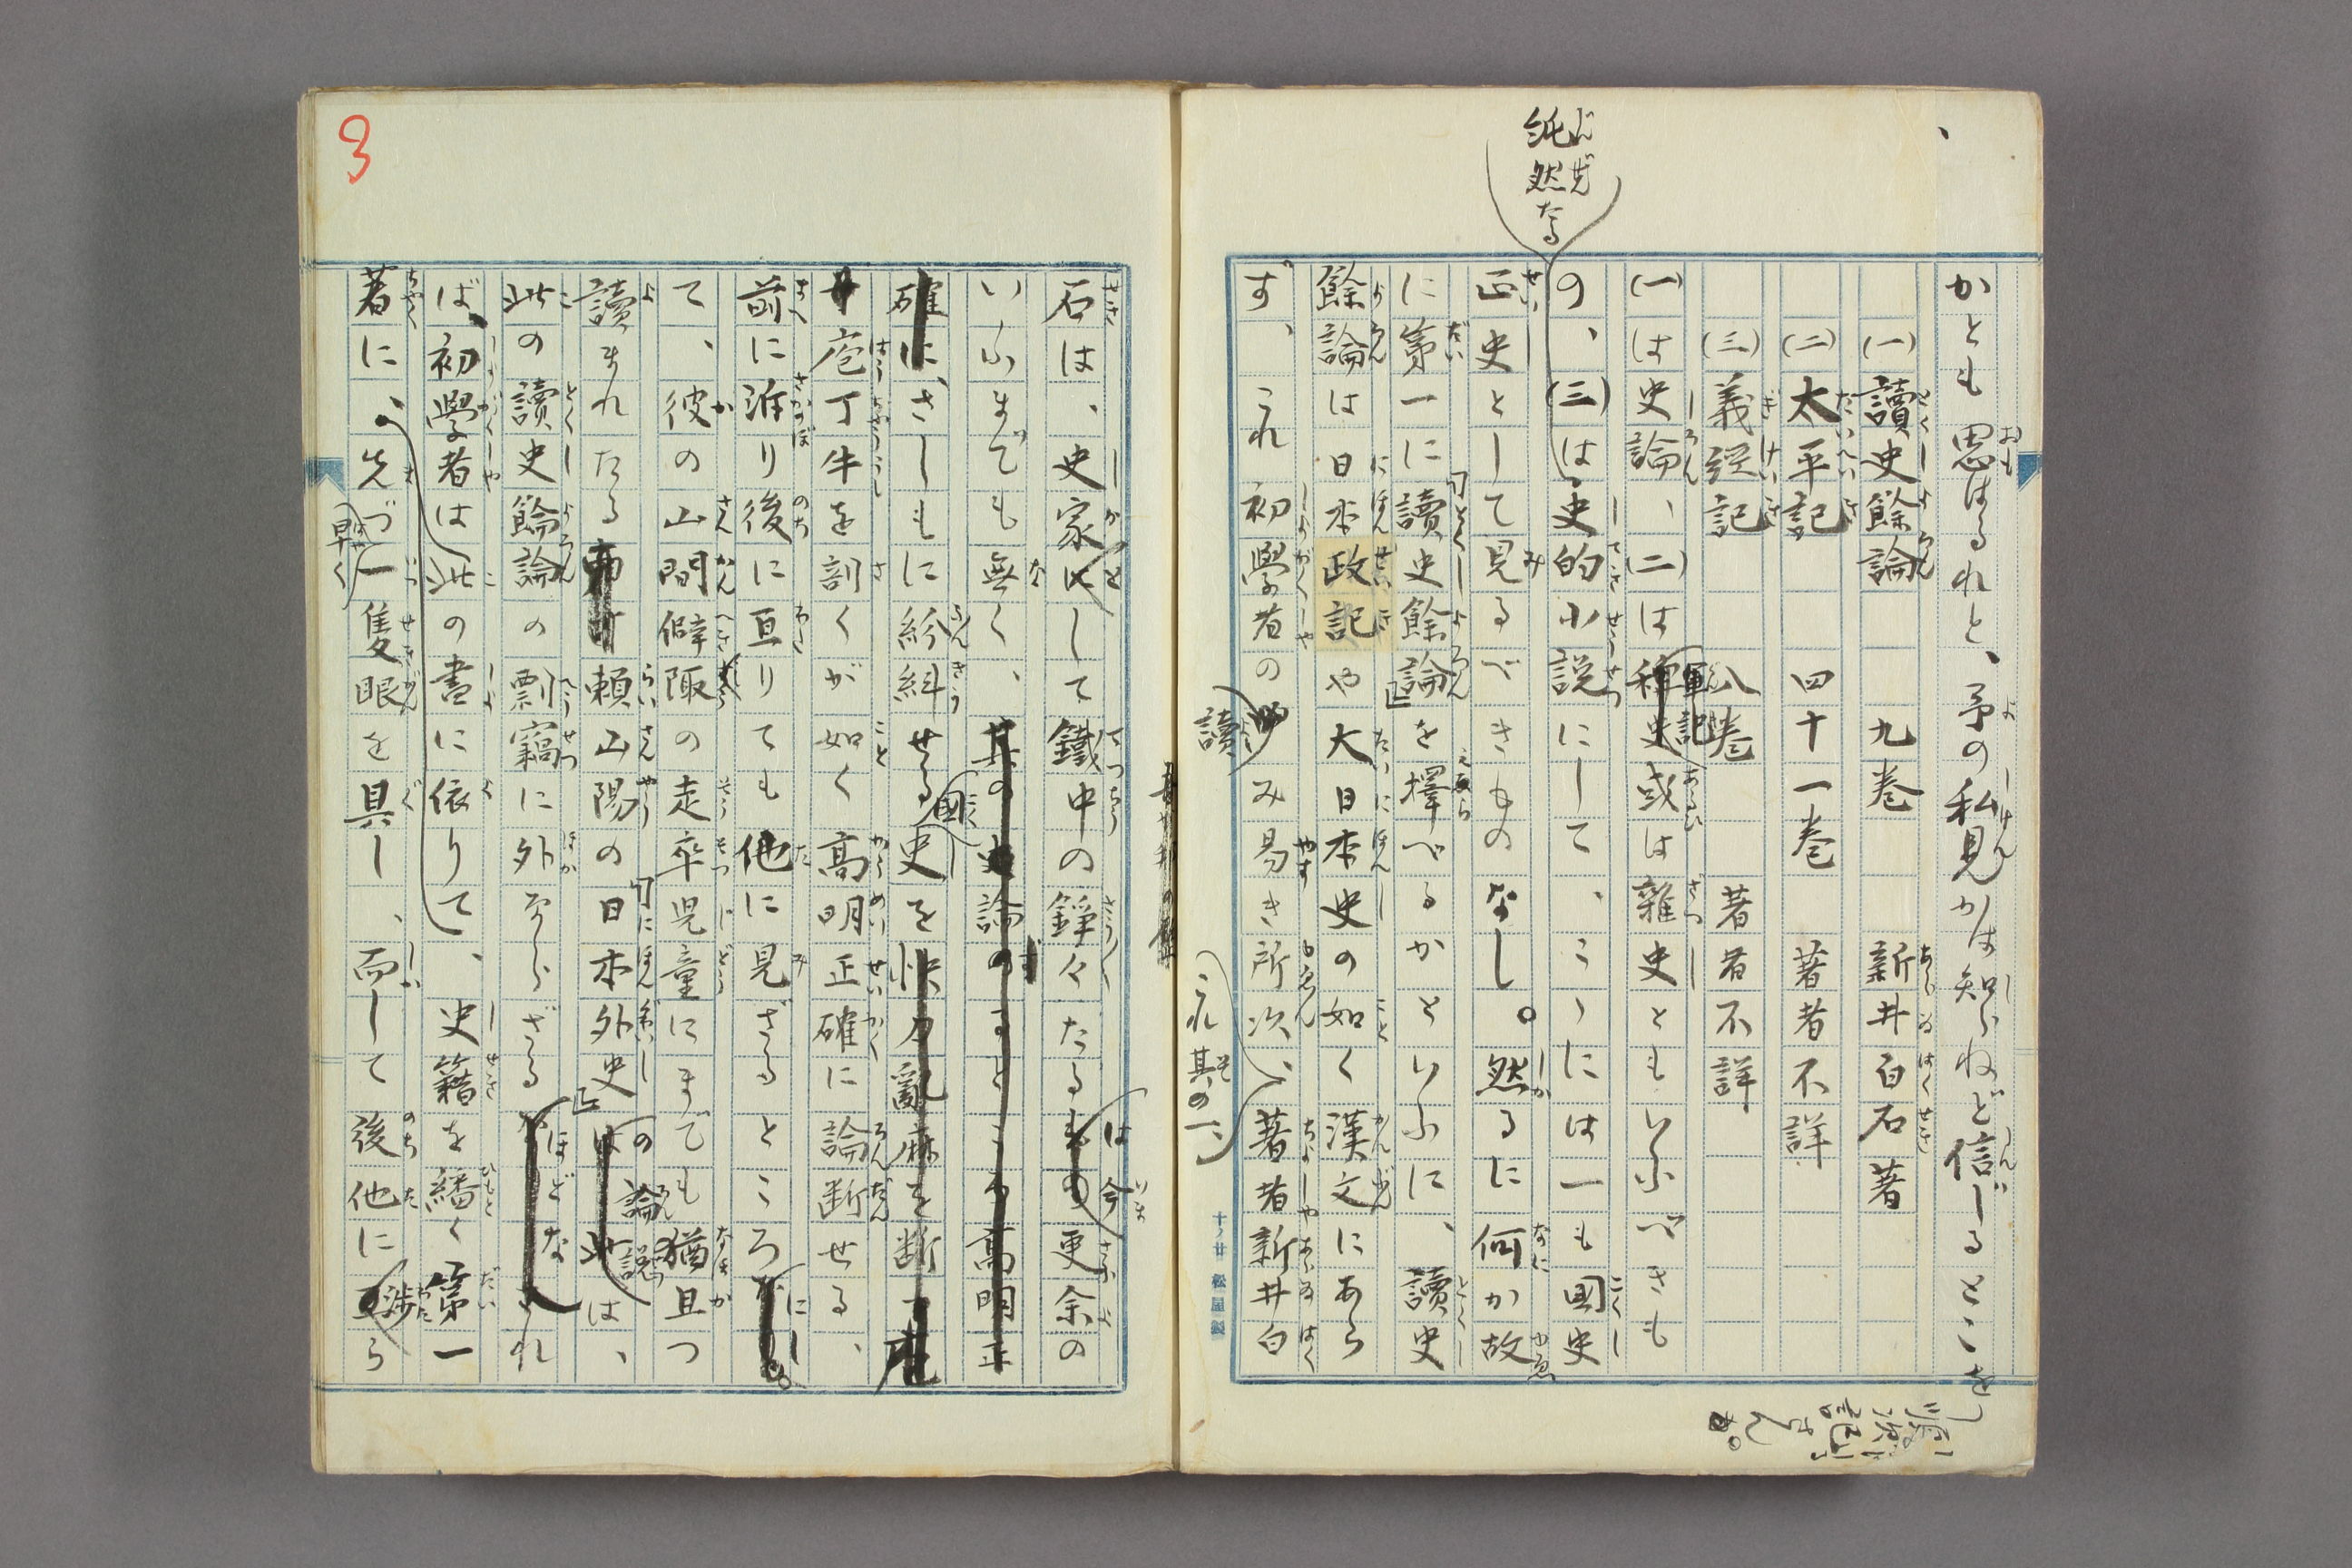 かとも思はるれど、予の私見かは知らねど信ずるところを
順次記さんか。
(一)讀史餘論 九巻 新井白石著
(二)太平記 四十一巻 著者不詳
(三)義経記 八巻 著者不詳
(一)は史論、(二)は軍記或は雜史ともいふべきも
の、(三)は史的小説にして、こゝには一も國史
純然たる
正史として見るべきものなし。然るに何が故
に第一に『讀史餘論』を擇べるかといふに、讀史
餘論は日本政記や大日本史の如く漢文にあら
ず、これ初學者の讀み易き所以、著者新井白
これ其の一
十ノ廿 松屋製
石は、史家として鐵中の錚々たるは今更余の
いふまでも無く、
さしもに紛糾せる國史を
庖丁牛を割くが如く高明正確に論断せる、
前に泝り後に亘りても他に見ざるところにし
て、彼の山間僻陬の走卒児童にまでも猶且つ
讀まれたる頼山陽の『日本外史』の論説は、
此の讀史餘論の剽竊に外ならざるほどなれ
ば、初學者は此の書に依りて、史籍を繙く第一
著に、早く一隻眼を具し、而して後他に渉ら
3